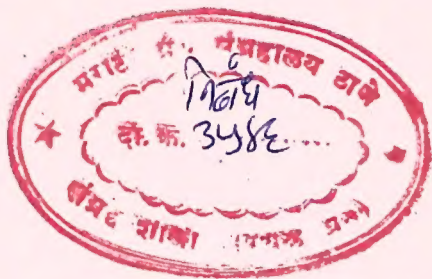 मराठी ग्रं. संग्रहालय ठाणे
निबंध
दा. क्र. ३५४६....
संग्रह शाखा